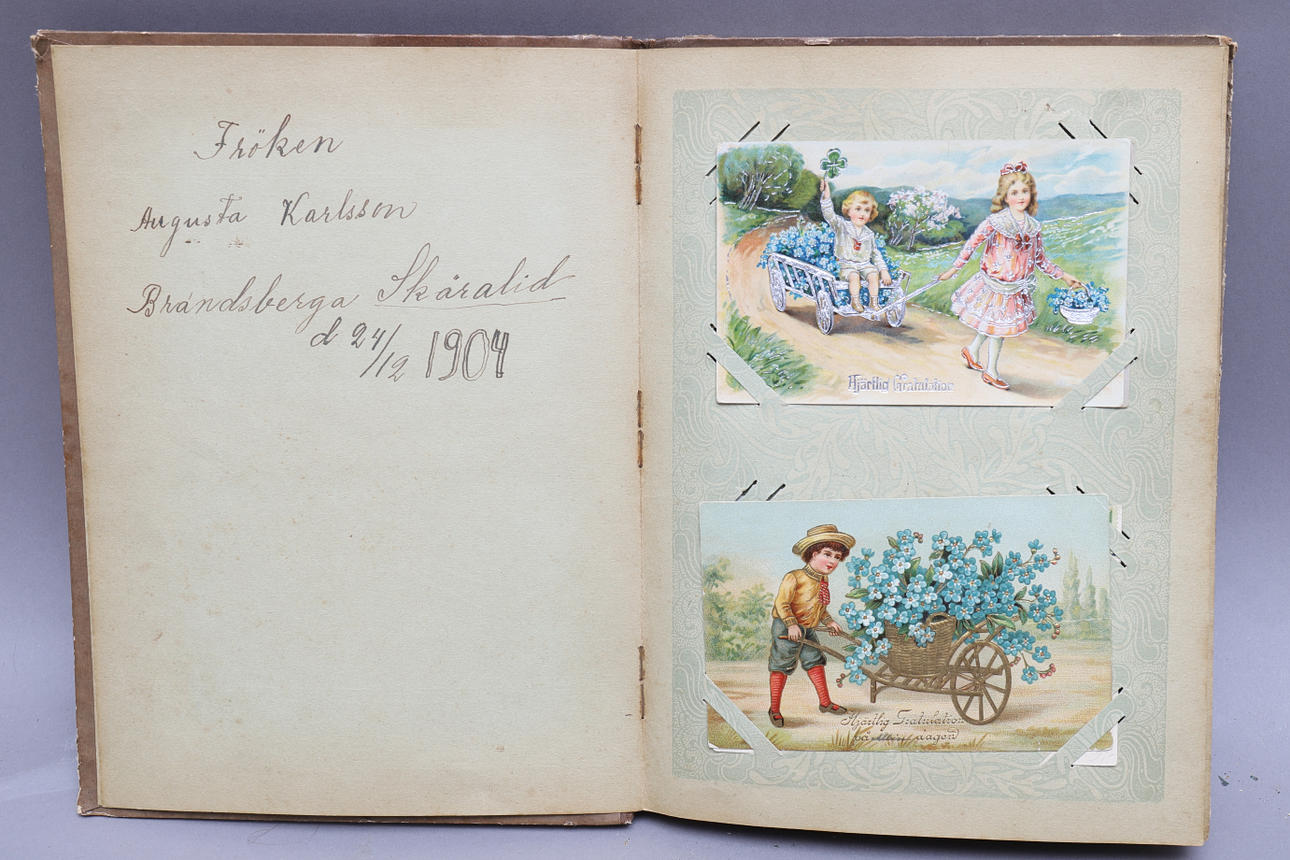 Fröken
Augusta Karlsson
Brandsberga Skäralid
d 24/12 1904
Hjärtlig Gratulation
Hjärtlig Gratulation
på dagen